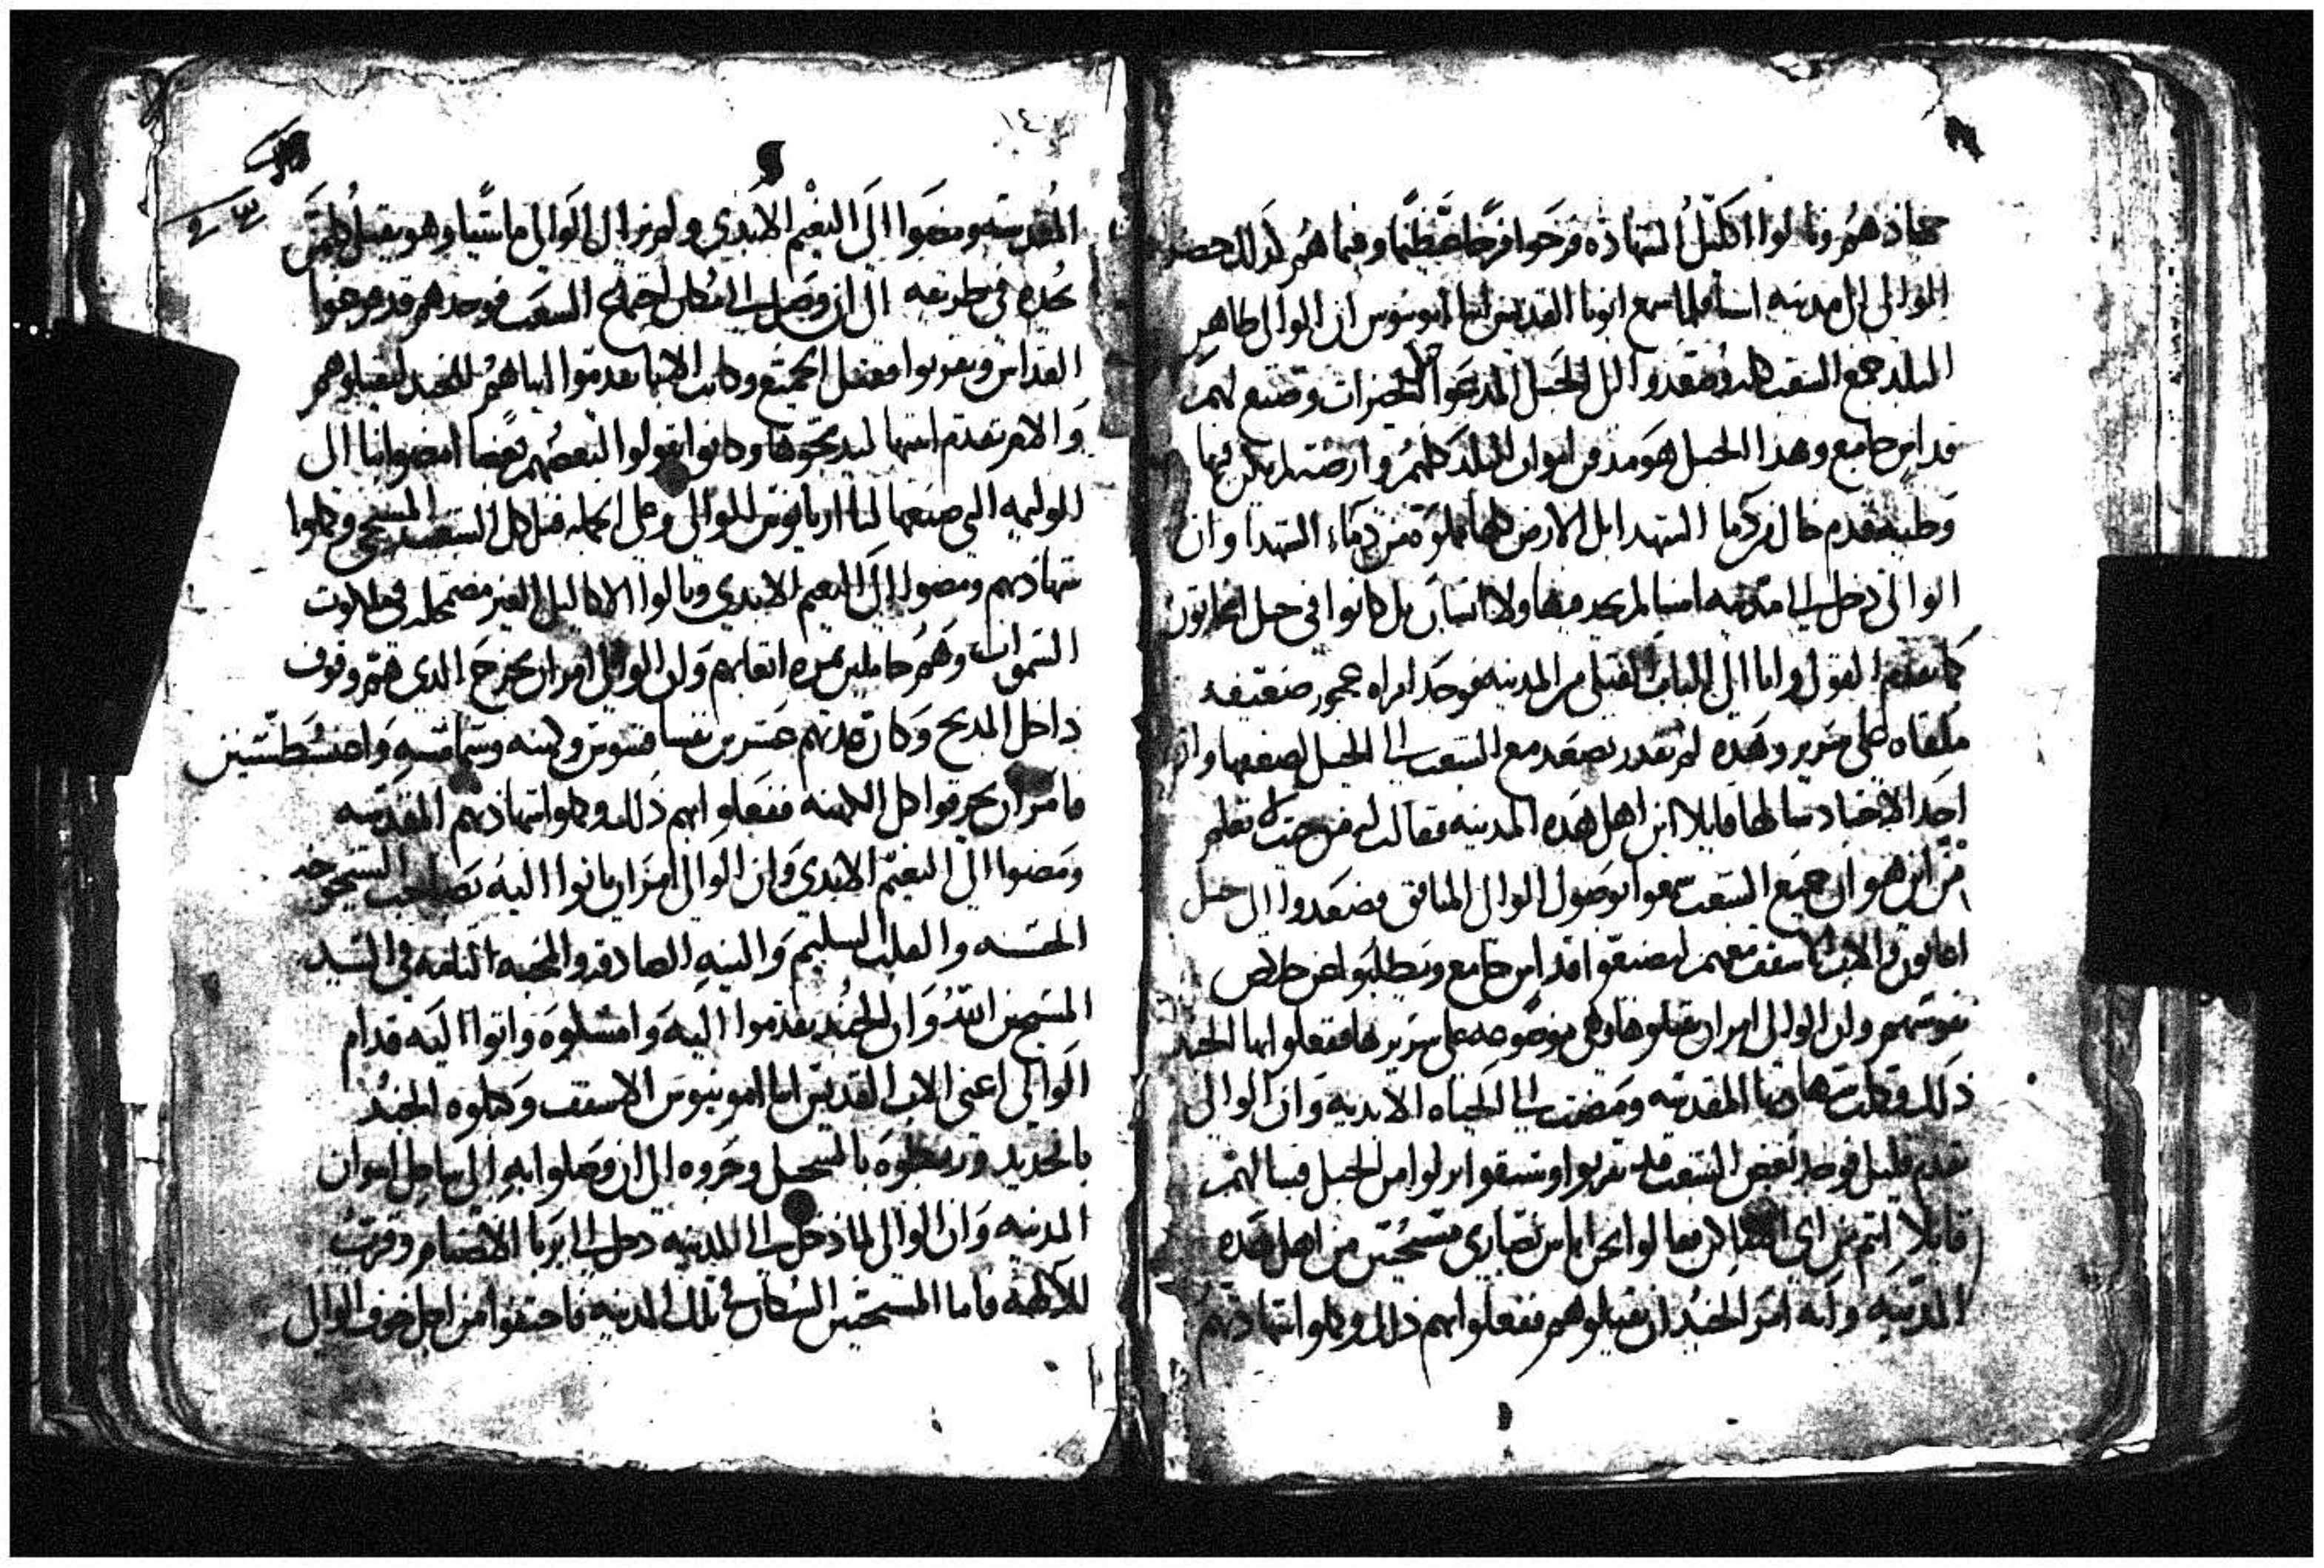 جهادهم ونالوا اكليل الشهاده فرحوا فرحا عظيما وفيما هم كذلك حضر
الوالى الى مدينه اسنا فلما سمع ابونا القديس انبا امونيوس ان الوالى طاهر
البلد جمع الشعب كله وصعدوا الى الجبل المدعوا الخيرات وصنع لهم
قداس جامع وهذا الجبل هو مدفن ابوان البلد كلهم وارضه لم يكن فيها
وطيه قدم خال من دما الشهدا بل الارض كلها مملوه من دماء الشهدا وان
الوالى دخل الى مدينه اسنا لم يجد فيها ولا انسان بل كانوا في جبل اغاتون
كما تقدم القول واما الى الباب القبلى من المدينه فوجد امراه عجوز ضعيفه
ملقاه على سرير وهذه لم تقدر تصعد مع الشعب الى الجبل لضعفها وان
احد الاجناد سالها قايلا اين اهل هذه المدينه فقالت له من جهت تعلم
من اين هو ان جميع الشعب سمعوا بوصول الوالى المنافق فصعدوا الى جبل
اغاتون والاب الاسقف معهم ليصنعوا قداس جامع ويطلبوا عن خلاص
نفوسهم وان الوالى امر ان يقتلوها وهى موضوعه على سريرها ففعلوا بها الجند
ذلك وكملت شهادتها المقدسه ومضت الى الحياه الابديه وان الوالى
تقدم قليل فوجد بعض الشعب قد تقربوا وسبقوا نزلوا من الجبل فسالهم
قايلا انتم من اى فقالوا نحن اناس نصارى مسيحيين من اهل هذه
المدينه وانه امر الجند ان يقتلوهم ففعلوا بهم ذلك وكملوا شهادتهم
١٤
المقدسه ومضوا الى النعيم الابدى ولم يزال الوالى ماشيا وهو يقتل كلمن
يجده في طريقه الى ان وصل الى مكان اجتماع الشعب فوجدهم قد فرغوا
القداس وتقربوا فقتل الجميع وكانت الامها تقدموا ابناهم للجند ليقتلوهم
والام تقدم ابنها ليدبحوها وكانوا يقولوا لبعضهم بعضا امضوا بنا الى
الوليمه التى صنعها لنا اريانوس الوالى وعلى الجمله قتل كل الشعب المسيحى وكملوا
شهادتهم ومضوا الى النعيم الابدى ونالوا الاكاليل الغير مضمحله في ملكوت
السموات وهم حاملين ثمره اتعابهم وان الوالى امر ان يخرج الدى هم وقوف
داخل المدبح وكان عدتهم عشرين نفسا قسوس وكهنه وشمامسه واغنسطسيين
فامر ان يحرقوا كل الكهنه ففعلوا بهم ذلك وكملوا شهادتهم المقدسه
ومضوا الى النعيم الابدى وان الوالى امر ان ياتوا اليه بصاحب الشيخوخه
الحسنه والقلب السليم والنيه الصادقه والمحبه التامه في السيد
المسيح ابن الله وان الجند تقدموا اليه وامسكوه واتوا اليه قدام
الوالى اعنى الاب القديس انبا امونيوس الاسقف وكبلوه الجند
بالحديد وربطوه بالسحيل وجروه الى ان وصلوا به الى ساحل اسوان
المدينه وان الوالى لما دخل الى المدينه دخل الى بربا الاصنام وقرب
للالهه فاما المسيحيين السكان في تلك المدينه فاختفوا من اجل خوف الوالى